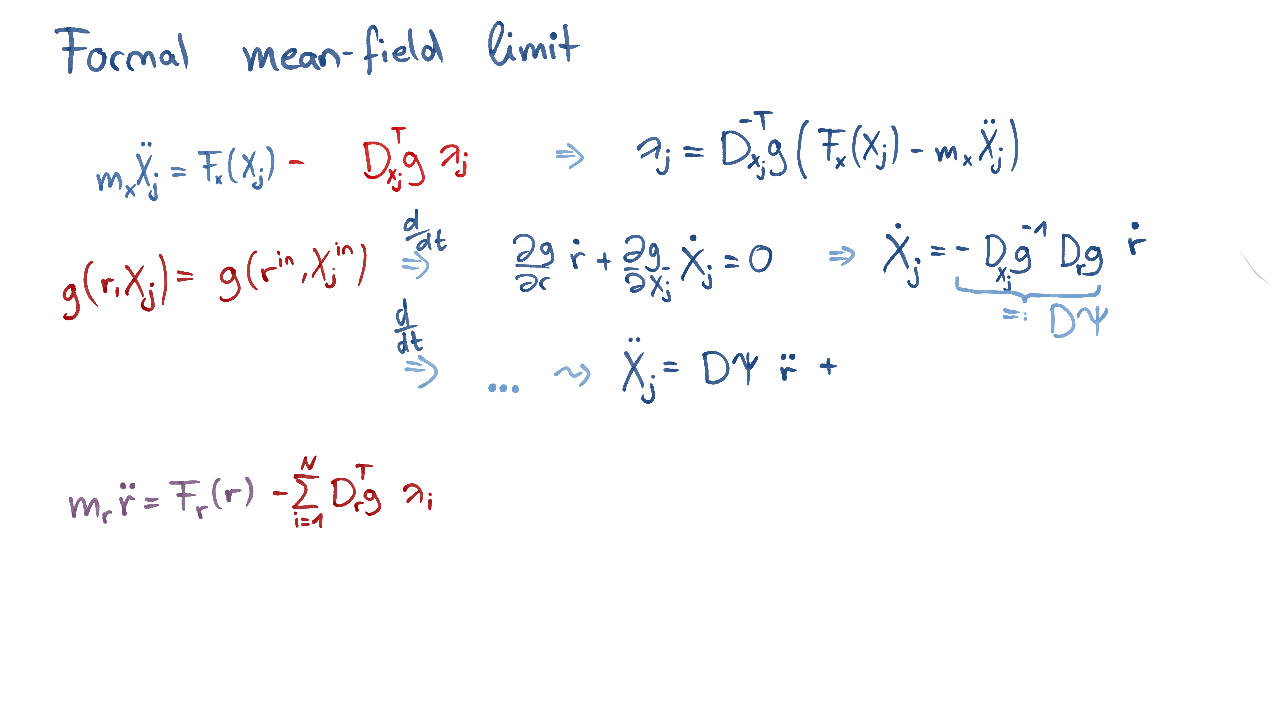 Formal mean-field limit
m_x Ẍ_j = F_x(X_j) - D_{x_j}^T g λ_j ⇒ λ_j = D_{x_j}^{-T} g (F_x(X_j) - m_x Ẍ_j)
g(r, X_j) = g(r^{in}, X_j^{in}) d/dt ⇒ ∂g/∂r ṙ + ∂g/∂X_j Ẋ_j = 0 ⇒ Ẋ_j = - D_{x_j} g^{-1} D_r g ṙ
=: DΨ
d/dt ⇒ ... ⇝ Ẍ_j = DΨ r̈ +
m_r r̈ = F_r(r) - ∑_{i=1}^N D_r^T g λ_i